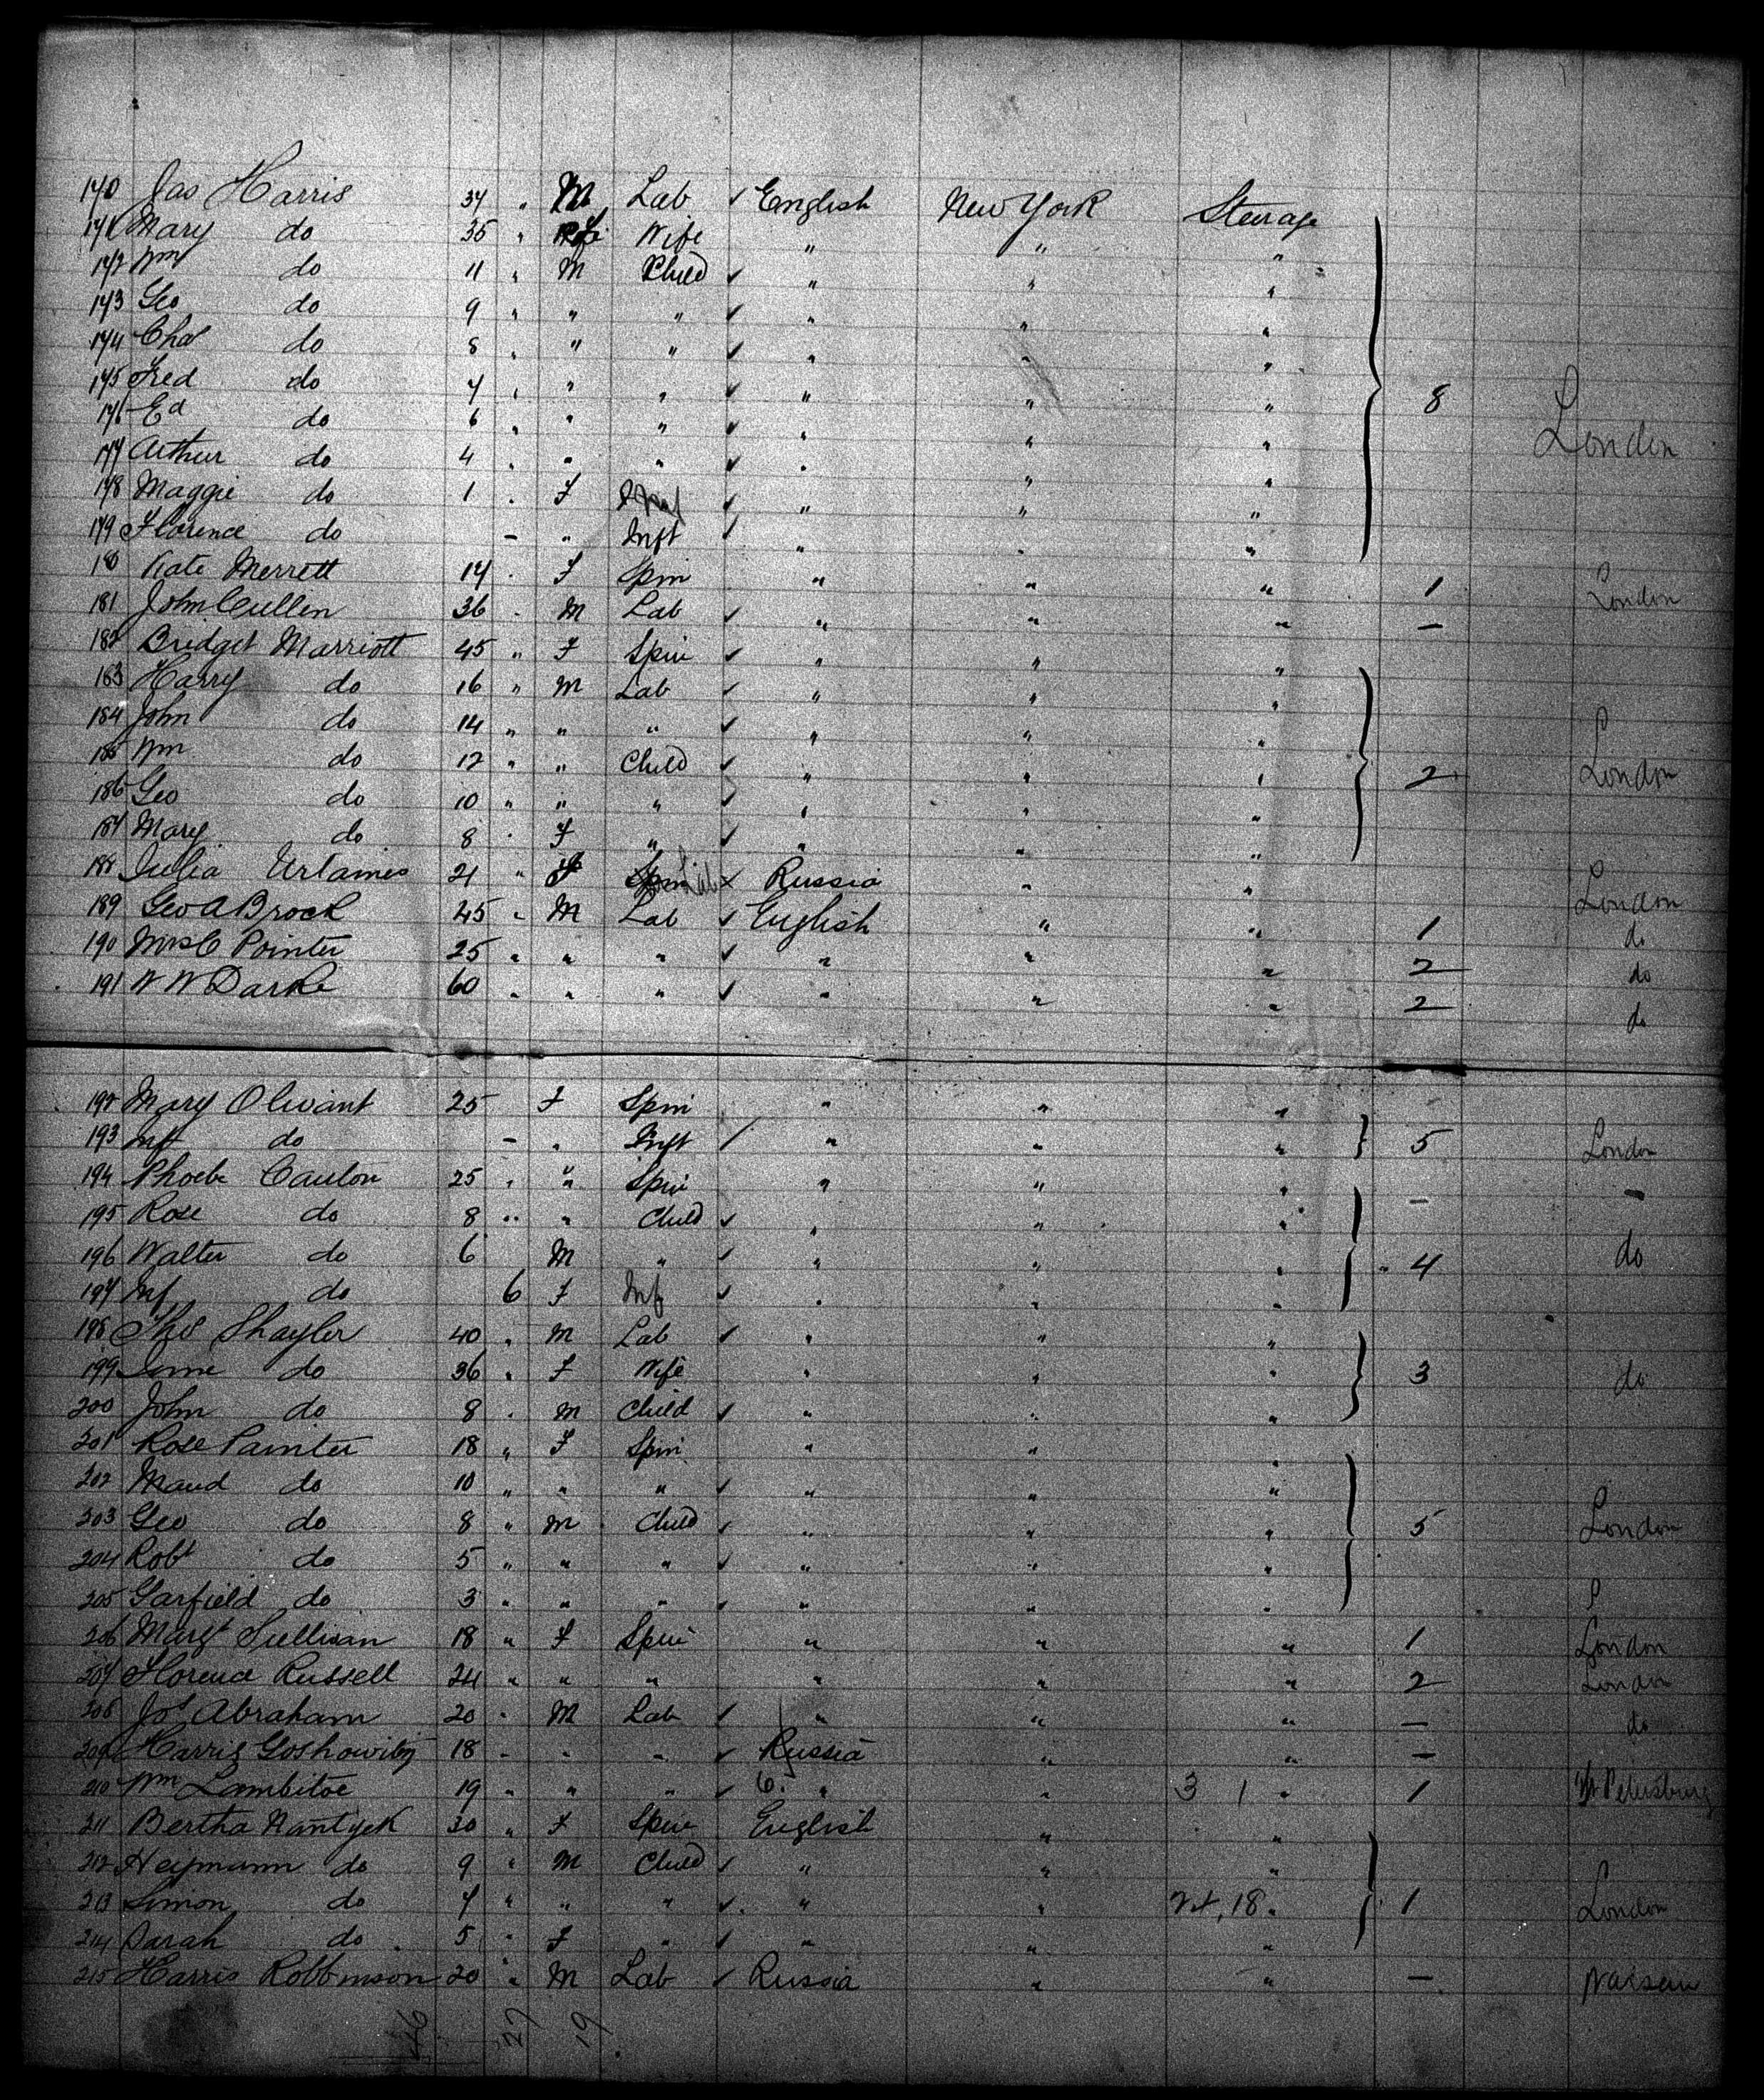 170 Jas Harris 34 " M Lab ✓ English New York Steerage
171 Mary do 35 " Wife " " "
172 Wm do 11 " M Child ✓ " " "
173 Geo do 9 " " " ✓ " " "
174 Chas do 8 " " " ✓ " " "
175 Fred do 7 " " " ✓ " " " 8 London
176 Ed do 6 " " " ✓ " " "
177 Arthur do 4 " " " ✓ " " "
178 Maggie do 1 " F ✓ " " "
179 Florence do - " Inft ✓ " " "
180 Kate Merrett 17 " F Spin " " " 1 London
181 John Cullen 36 " M Lab ✓ " " " —
182 Bridget Marriott 45 " F Spin ✓ " " "
183 Harry do 16 " M Lab ✓ " " "
184 John do 14 " " " ✓ " " "
185 Wm do 12 " " Child ✓ " " " 2 London
186 Geo do 10 " " " ✓ " " "
187 Mary do 8 " F " ✓ " " "
188 Julia Urtaines 21 " F Russia " " London
189 Geo A Brock 45 " M Lab ✓ English " " 1 do
190 Pointer 25 " " " ✓ " " " 2 do
191 W W Darke 60 " " " ✓ " " " 2 do
192 Mary Olivant 25 F Spin " " "
193 Inft do - " Inft / " " " 5 London
194 Phoebe Caulon 25 " " Spin " " " — -
195 Rose do 8 " " Child ✓ " " "
196 Walter do 6 M " ✓ " " " 4 do
197 Inf do 6 F Inf ✓ " " "
198 Thos Shayler 40 " M Lab ✓ " " "
199 do 36 " F Wife " " " 3 do
200 John do 8 " M Child ✓ " " "
201 Rose Painter 18 " F Spin " " "
202 Maud do 10 " " " ✓ " " "
203 Geo do 8 " M Child ✓ " " " 5 London
204 Robt do 5 " " " ✓ " " "
205 Garfield do 3 " " " ✓ " " "
206 Margt Sullivan 18 " F Spin " " " 1 London
207 Florence Russell 24 " " " " " " 2 London
208 Jos Abraham 20 " M Lab ✓ " " " — do
209 Harris 18 " " " ✓ Russia " " —
210 Wm Lambitoe 19 " " " ✓ 6. " " 3 1 " 1 St Petersburg
211 Bertha Nantyek 30 " F Spin English " "
212 Heymann do 9 " M Child ✓ " " "
213 Simon do 7 " " " ✓ " " 24,18 " 1 London
214 Sarah do 5 " F " ✓ " " "
215 Harris Robbinson 20 " M Lab ✓ Russia " " — Warsaw
46 27 19